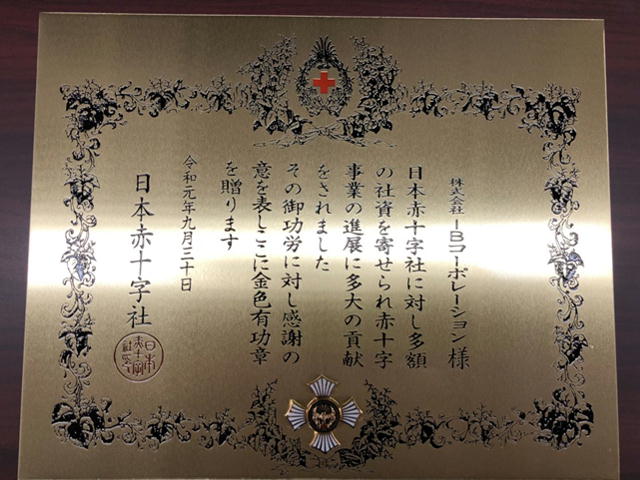 株式会社 IBコーポレーション 様
日本赤十字社に対し多額
の社資を寄せられ赤十字
事業の進展に多大の貢献
をされました
その御功労に対し感謝の
意を表しここに金色有功章
を贈ります
令和元年九月三十日
日本赤十字社